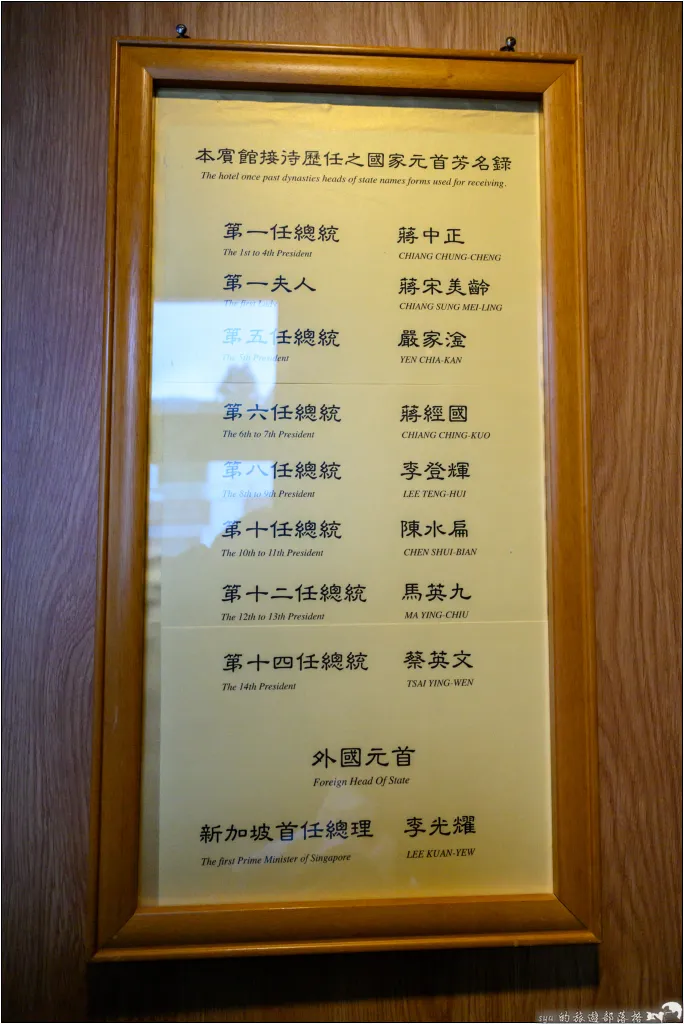 本賓館接待歷任之國家元首芳名錄
The hotel once past dynasties heads of state names forms used for receiving.
第一任總統 蔣中正
The 1st to 4th President CHIANG CHUNG-CHENG
第一夫人 蔣宋美齡
The first Lady CHIANG SUNG MEI-LING
第五任總統 嚴家淦
The 5th President YEN CHIA-KAN
第六任總統 蔣經國
The 6th to 7th President CHIANG CHING-KUO
第八任總統 李登輝
The 8th to 9th President LEE TENG-HUI
第十任總統 陳水扁
The 10th to 11th President CHEN SHUI-BIAN
第十二任總統 馬英九
The 12th to 13th President MA YING-CHIU
第十四任總統 蔡英文
The 14th President TSAI YING-WEN
外國元首
Foreign Head Of State
新加坡首任總理 李光耀
The first Prime Minister of Singapore LEE KUAN-YEW
的旅遊部落格